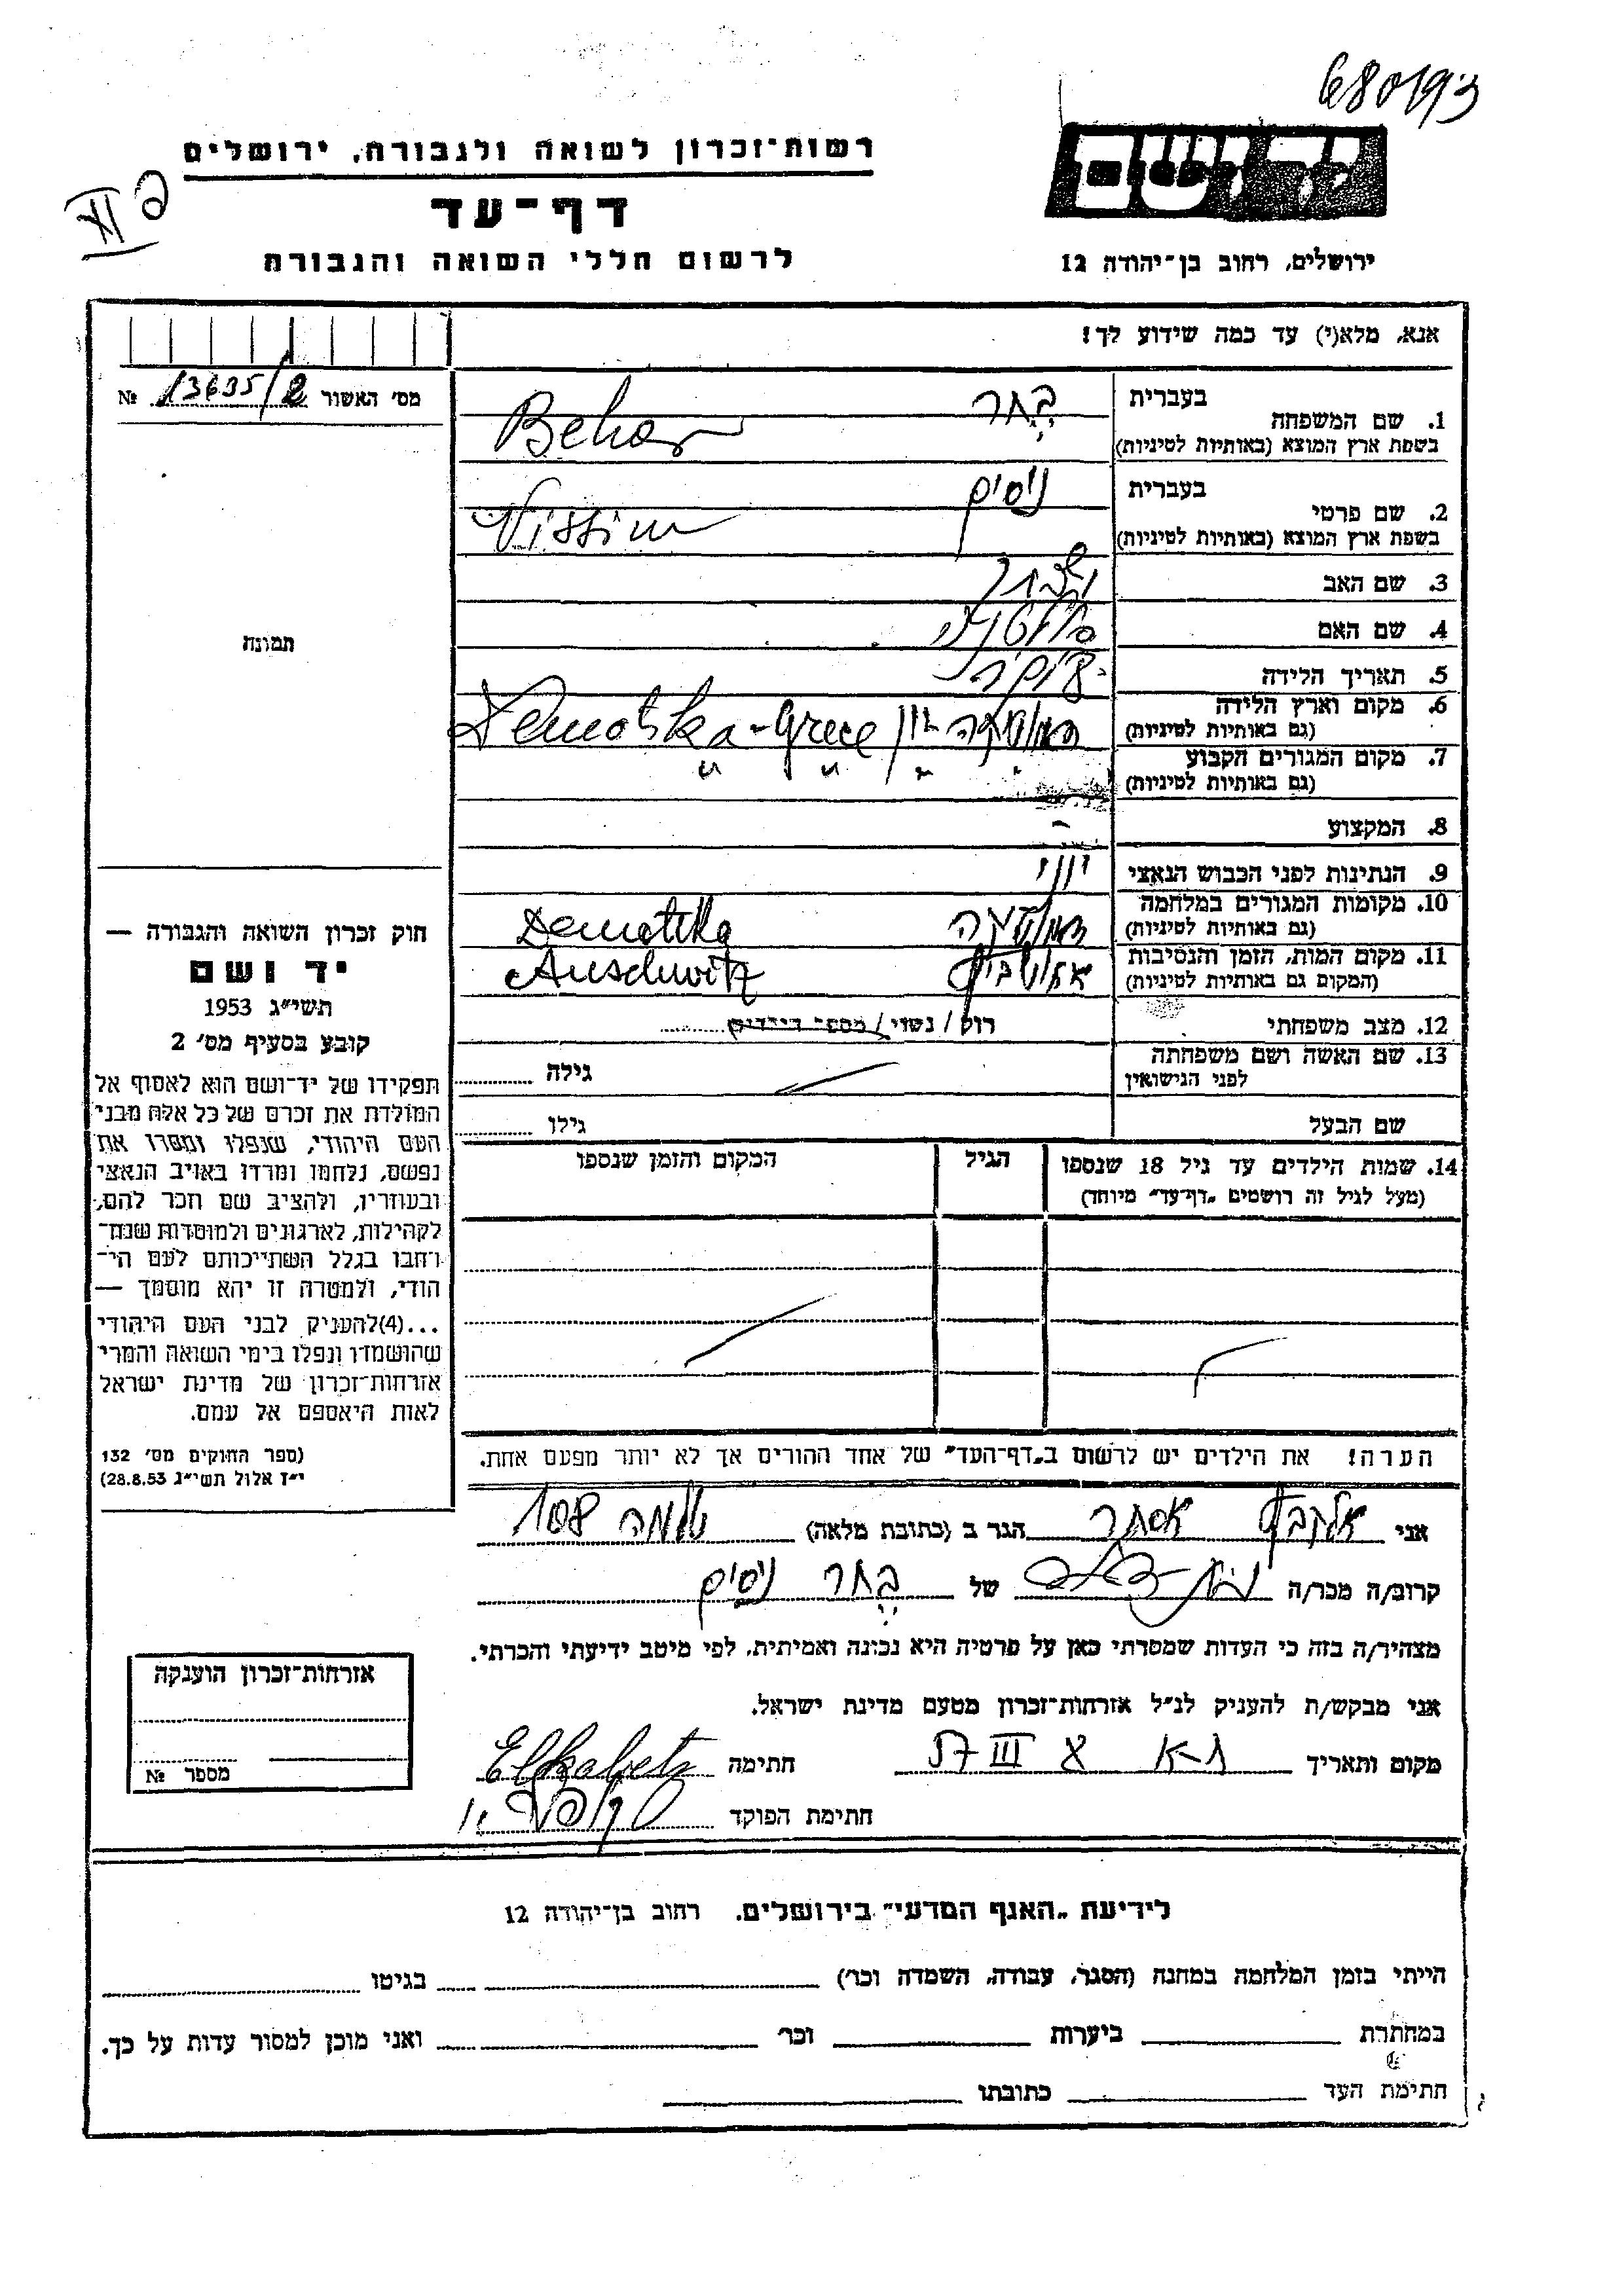 680193
רשות־זכרון לשואה ולגבורה, ירושלים
דף־עד
לרשום חללי השואה והגבורה
יד ושם
ירושלים, רחוב בן־יהודה 12
אנא, מלא(י) עד כמה שידוע לך!
מס׳ האשור 13635/2 №
תמונה
1. שם המשפחה בעברית בכר
בשפת ארץ המוצא (באותיות לטיניות) Behar
2. שם פרטי בעברית ניסים
בשפת ארץ המוצא (באותיות לטיניות) Nissim
3. שם האב
4. שם האם
5. תאריך הלידה
6. מקום וארץ הלידה
(גם באותיות לטיניות) יון Demotika - Grece
7. מקום המגורים הקבוע
(גם באותיות לטיניות) " " " "
8. המקצוע -
9. הנתינות לפני הכבוש הנאצי יווני
10. מקומות המגורים במלחמה
(גם באותיות לטיניות) דמוטיקה Demotika
11. מקום המות, הזמן והנסיבות
(המקום גם באותיות לטיניות) אושויץ Auschwitz
12. מצב משפחתי רווק / נשוי / מספר הילדים
13. שם האשה ושם משפחתה
לפני הנישואין גילה
שם הבעל גילו
14. שמות הילדים עד גיל 18 שנספו
(מעל לגיל זה רושמים „דף־עד” מיוחד)
הגיל
המקום והזמן שנספו
הערה! את הילדים יש לרשום ב„דף־העד” של אחד ההורים אך לא יותר מפעם אחת.
חוק זכרון השואה והגבורה —
יד ושם
תשי״ג 1953
קובע בסעיף מס׳ 2
תפקידו של יד־ושם הוא לאסוף אל
המולדת את זכרם של כל אלה מבני
העם היהודי, שנפלו ומסרו את
נפשם, נלחמו ומרדו באויב הנאצי
ובעוזריו, ולהציב שם וזכר להם,
לקהילות, לארגונים ולמוסדות שנח־
רבו בגלל השתייכותם לעם הי־
הודי, ולמטרה זו יהא מוסמך —
...(4)להעניק לבני העם היהודי
שהושמדו ונפלו בימי השואה והמרי
אזרחות־זכרון של מדינת ישראל
לאות היאספם אל עמם.
(ספר החוקים מס׳ 132
י״ז אלול תשי״ג 28.8.53)
אני אלקבץ אסתר הגר ב (כתובת מלאה) שלמה 108
קרוב/ה מכר/ה של בכר ניסים
מצהיר/ה בזה כי העדות שמסרתי כאן על פרטיה היא נכונה ואמיתית, לפי מיטב ידיעתי והכרתי.
אני מבקש/ת להעניק לנ״ל אזרחות־זכרון מטעם מדינת ישראל.
מקום ותאריך ת-א 8 III 57 חתימה Elkabetz
חתימת הפוקד
אזרחות־זכרון הוענקה
מספר №
לידיעת „האגף המדעי” בירושלים, רחוב בן־יהודה 12
הייתי בזמן המלחמה במחנה (הסגר, עבודה, השמדה וכו׳) בגיטו
במחתרת ביערות וכו׳ ואני מוכן למסור עדות על כך.
חתימת העד כתובתו